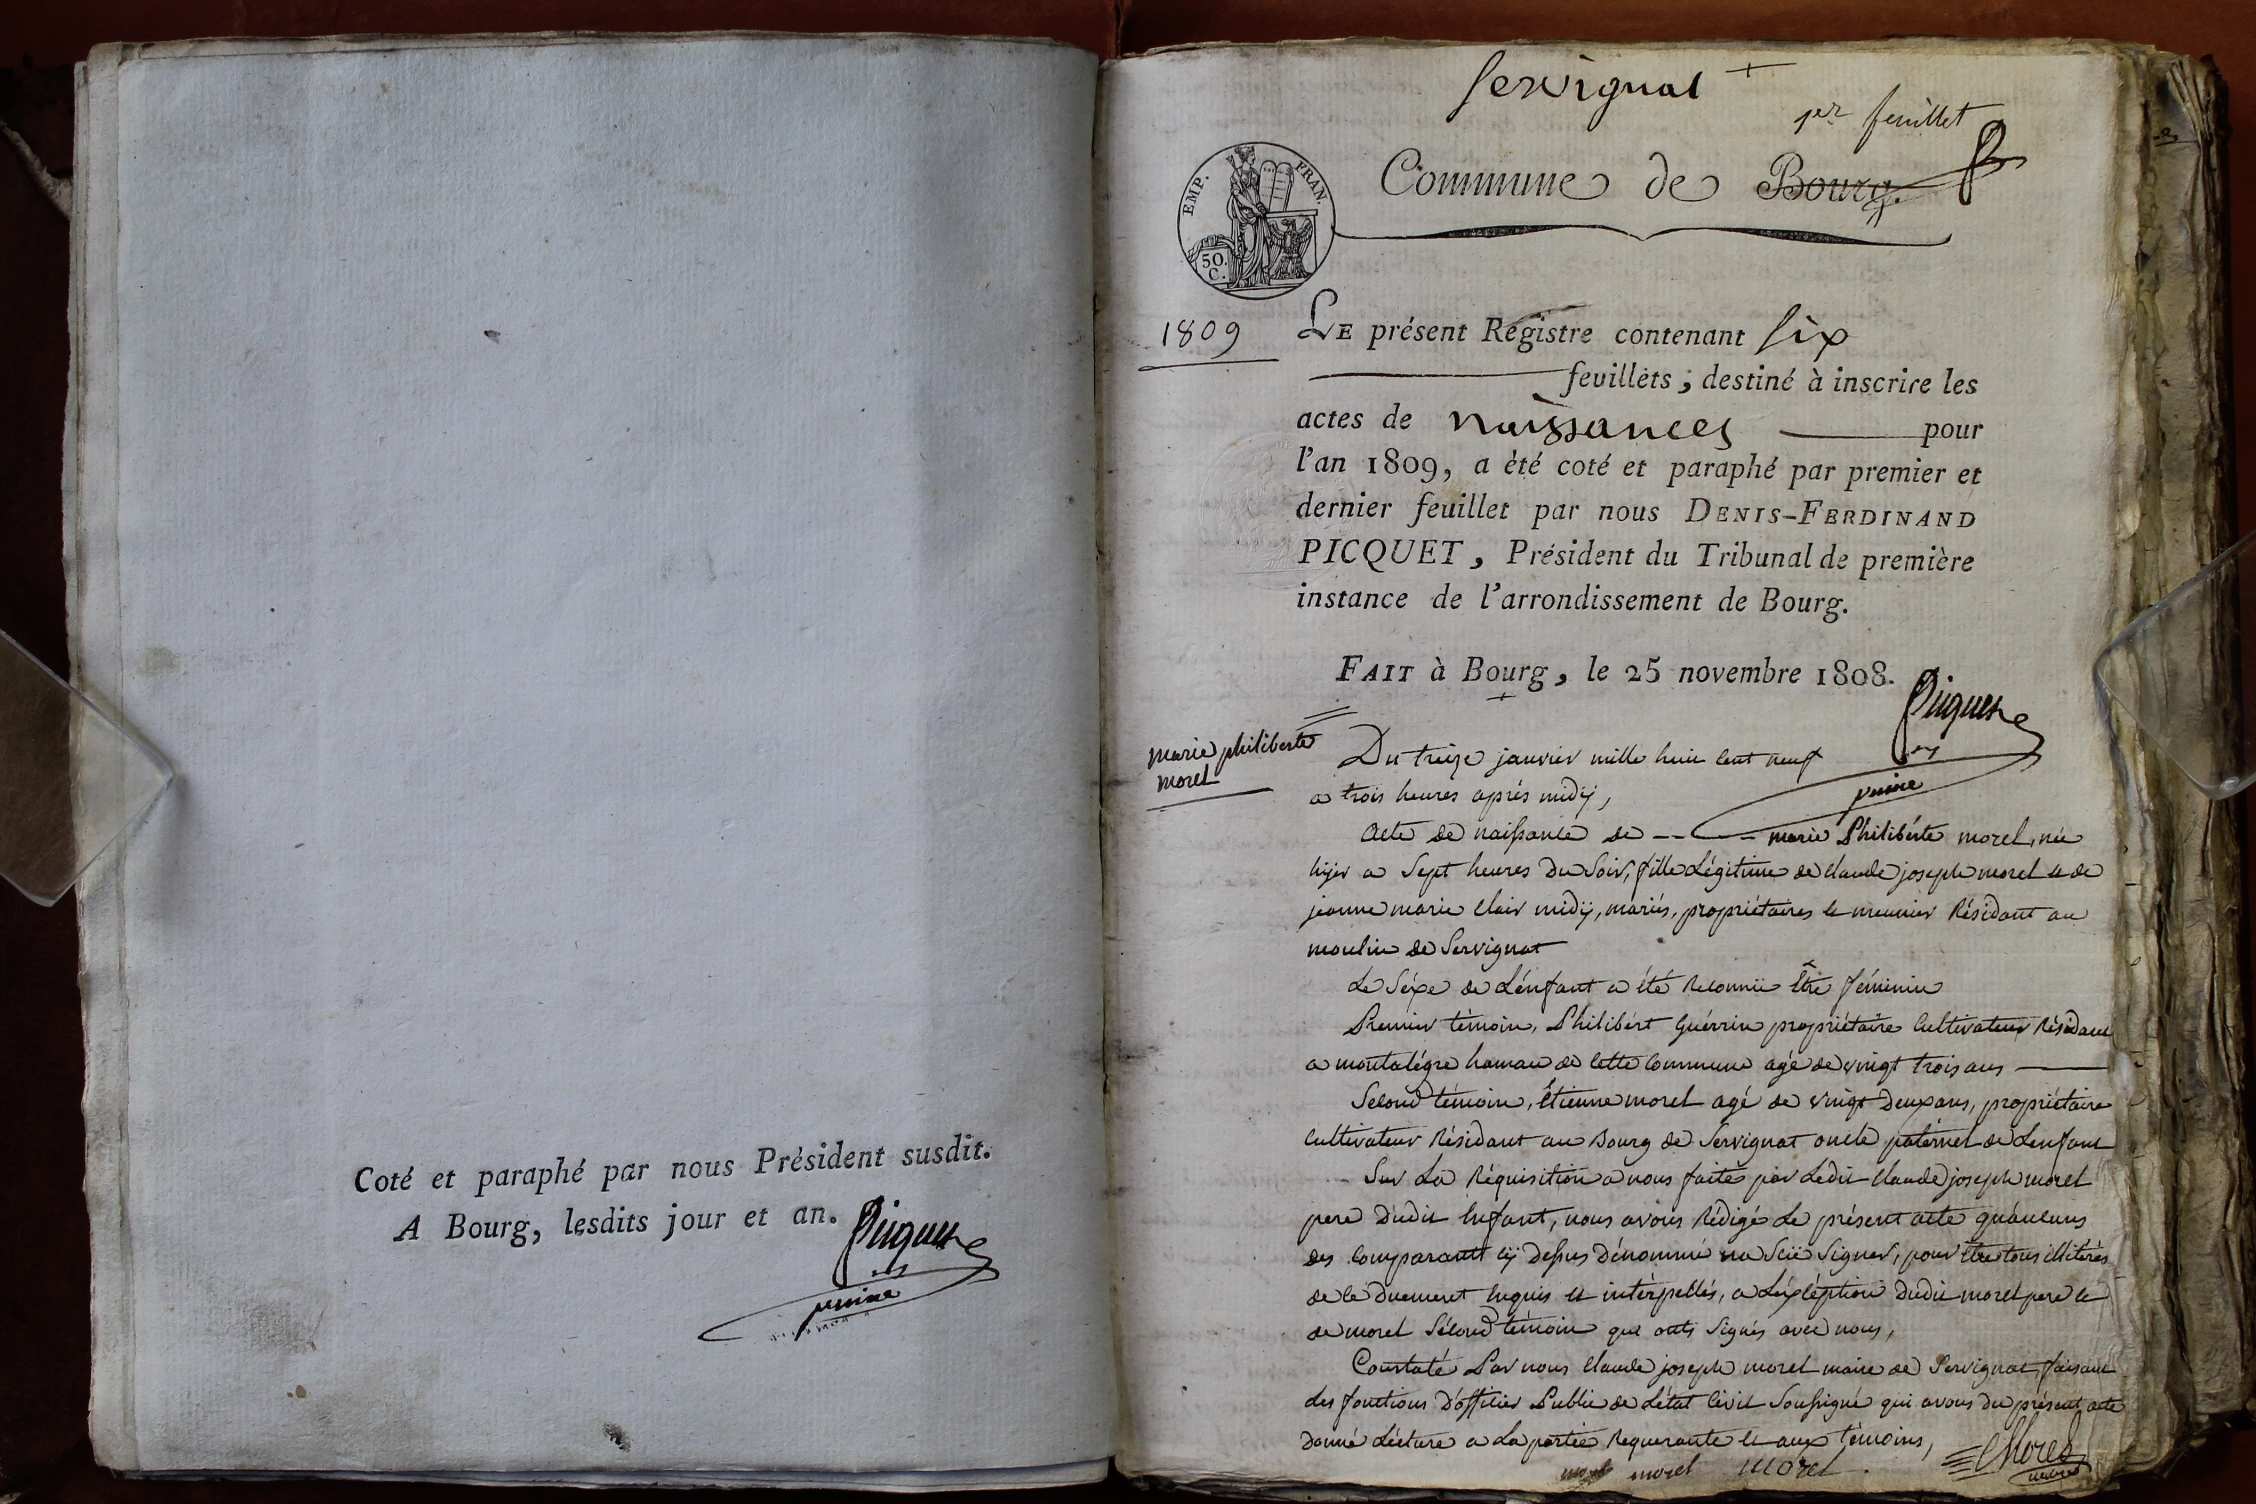 Coté et paraphé par nous Président susdit.
A Bourg, lesdits jour et an.
Picquet
Servignat
1er feuillet
EMP. FRAN.
50. C.
Commune de Bourg.
1809
LE présent Registre contenant six
feuillets, destiné à inscrire les
actes de naissances pour
l'an 1809, a été coté et paraphé par premier et
dernier feuillet par nous DENIS-FERDINAND
PICQUET, Président du Tribunal de première
instance de l'arrondissement de Bourg.
FAIT à Bourg, le 25 novembre 1808.
Picquet
marie philiberte
morel
Du treize janvier mille huit cent neuf
a trois heures après midÿ,
Acte de naissance de -- marie Philibérte morel, née
hÿer a Sept heures du Soir, fille Légitime de claude joseph morel et de
jeanne marie Clair midÿ, mariés, propriétaires et meunier Résidant au
moulin de Servignat
Le Séxe de L'énfant a été Reconnü être féminin
Premier témoin, Philibért Guérrin propriétaire Cultivateur Résidant
a montalégre hamau de cette Commune agé de vingt trois ans
Second témoin, Étienne morel agé de vingt deux ans, propriétaire
Cultivateur Résidant au Bourg de Servignat oncle patérnel de Lenfant
Sur La Réquisition a nous faite par Ledit claude joseph morel
pere dudit Enfant, nous avons Rédigé Le présent acte qu'aucuns
des Comparant cÿ dessus dénommé na Scü Signer, pour être tous illitérés
de ce duement enquis et intérpellés, a L'éxcéption dudit morel pere et
de morel Sécond témoin qui onts Signés avec nous,
Constaté Par nous Claude joseph morel maire de Servignat, faisant
Les fonctions d'officier Public de L'état Civil Soussigné qui avons du présent acte
donné Lécture a La partie Requerante et aux témoins,
morel morel
Morel